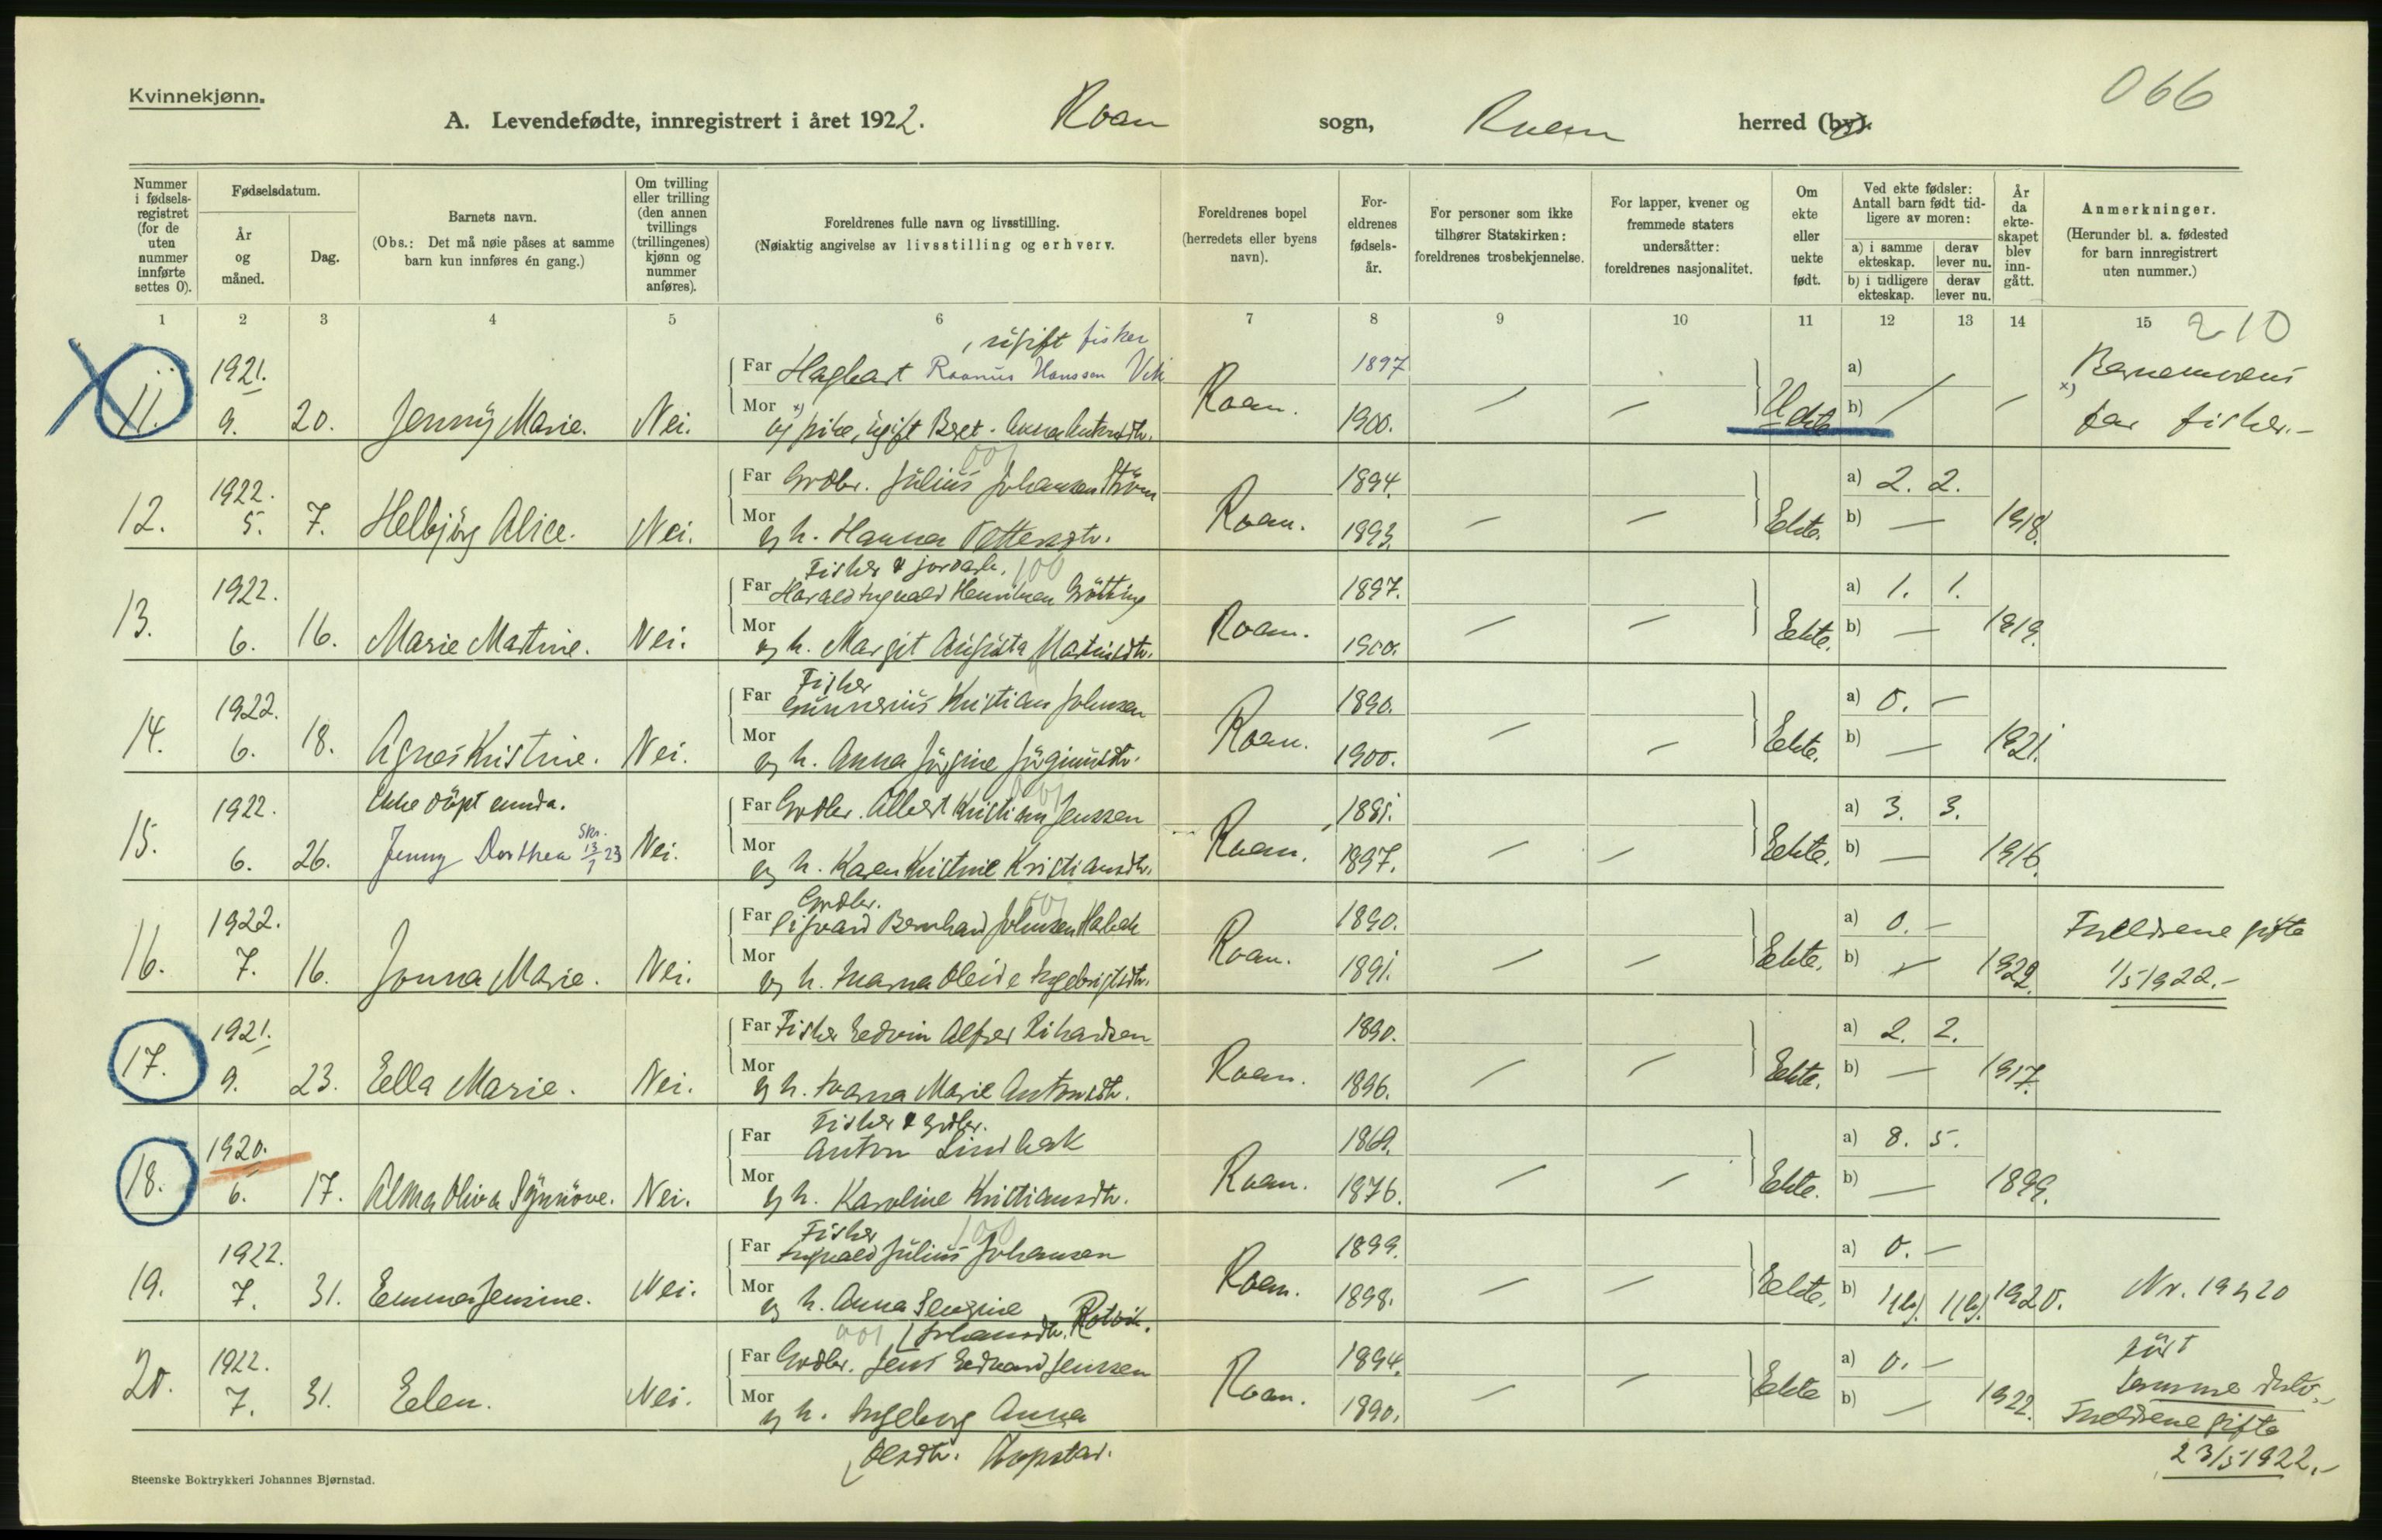 066
Kvinnekjønn.
A. Levendefødte, innregistrert i året 1922. Roan sogn, Roan herred (by).
Nummer i fødselsregistret (for de uten nummer innførte settes 0).
Fødselsdatum.
År og måned.
Dag.
Barnets navn.
(Obs.: Det må nøie påses at samme barn kun innføres én gang.)
Om tvilling eller trilling (den annen tvillings (trillingenes) kjønn og nummer anføres).
Foreldrenes fulle navn og livsstilling.
(Nøiaktig angivelse av livsstilling og erhverv.
Foreldrenes bopel (herredets eller byens navn).
Foreldrenes fødselsår.
For personer som ikke tilhører Statskirken: foreldrenes trosbekjennelse.
For lapper, kvener og fremmede staters undersåtter: foreldrenes nasjonalitet.
Om ekte eller uekte født.
Ved ekte fødsler: Antall barn født tidligere av moren:
a) i samme ekteskap. derav lever nu.
b) i tidligere ekteskap. derav lever nu.
År da ekteskapet blev inngått.
Anmerkninger.
(Herunder bl. a. fødested for barn innregistrert uten nummer.)
1 2 3 4 5 6 7 8 9 10 11 12 13 14 15 210
11. 1921. 9. 20. Jenny Marie. Nei.
, ugift fisker
Far Hagbart Hanssen Vik 1897
Mor x) og pike, ugift Beret Anna Roan. 1900. a) / b) / –
x) far fisker.–
12. 1922. 5. 7. Helbjörg Alice. Nei.
001
Far Grdbr. Julius Johansen Ström 1894. a) 2. 2.
Mor og h. Hanna Pettersdtr. Roan. 1893. Ekte. b) – 1918.
13. 1922. 6. 16. Marie Martine. Nei.
Fisker & jordarb. 100
Far Harald Ingvald Henriksen 1897. a) 1. 1.
Mor og h. Margit Augusta Martinsdtr. Roan. 1900. Ekte. b) – 1919.
14. 1922. 6. 18. Agnes Kristine. Nei.
Fisker
Far Gunnerius Kristian Johnsen 1890. a) 0. –
Mor og h. Anna Jörgine Jörginusdtr. Roan. 1900. Ekte. b) – 1921.
15. 1922. 6. 26. Ikke döpt ennda.
Jenny Dorthea Skr. 13/1 23 Nei.
001
Far Grdbr. Albert Kristian Jenssen 1881. a) 3. 3.
Mor og h. Karen Kristine Kristiansdtr. Roan. 1897. Ekte. b) – 1916.
16. 1922. 7. 16. Jonna Marie. Nei.
Grdbr. 001
Far Sigvard Bernhard Johnsen Harbak 1890. a) 0. –
Mor og h. Oleide Ingebrigtsdtr. Roan. 1891. Ekte. b) – 1922.
Foreldrene gifte
1/5 1922.–
17. 1921. 9. 23. Ella Marie. Nei.
Far Fisker Edvin Alfred Rikardsen 1890. a) 2. 2.
Mor og h. Marie Antonsdtr. Roan. 1896. Ekte. b) – 1917.
18. 1920. 6. 17. Alma Oliva Synnöve. Nei.
Fisker & grdbr.
Far Anton Lindbak 1869. a) 8. 5.
Mor og h. Karoline Kristiansdtr. Roan. 1876. Ekte. b) – 1899.
19. 1922. 7. 31. Emma Jensine. Nei.
Fisker 100
Far Ingvald Julius Johansen 1899. a) 0. –
Mor og h. Anna Roan. 1898. Ekte. b) 1920.
Johansdtr.
Nr. 19 & 20
20. 1922. 7. 31. Elen. Nei.
001
Far Grdbr. Jens Edvard Jenssen 1894. a) 0. –
Mor og h. Ingeborg Anna Roan. 1890. Ekte b) – 1922.
Olsdtr. Hopstad.
född
samme dato.–
Foreldrene gifte
23/5 1922.–
Steenske Boktrykkeri Johannes Bjørnstad.